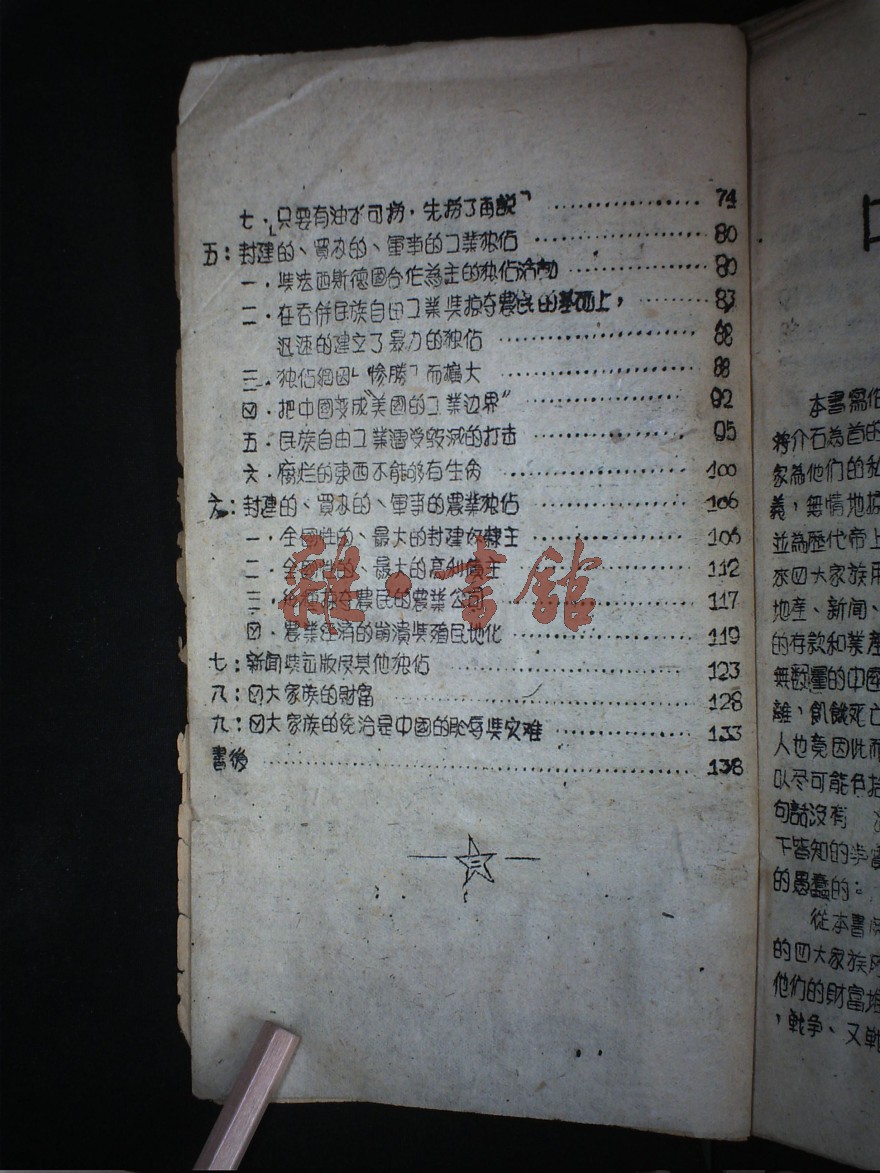 七．「只要有油水可捞，先捞了再説」 74
五：封建的、買办的、軍事的工業独佔 80
一．與法西斯德國合作為主的独佔活動 80
二．在吞併民族自由工業與掠夺農民的基础上， 83
迅速的建立了暴力的独佔 88
三．独佔經因「惨勝」而擴大 88
四．把中國变成"美國的工業边界" 92
五．民族自由工業遭受毀滅的打击 95
六．腐烂的東西不能够有生命 100
六：封建的、買办的、軍事的農業独佔 106
一．全國性的、最大的封建奴隸主 106
二．全國性的、最大的高利債主 112
三． 掠夺農民的農業公司 117
四．農業经済的崩潰與殖民地化 119
七：新闻與出版及其他独佔 123
八：四大家族的財富 128
九：四大家族的统治是中國的耻辱與灾难 133
書後 138
三
雜·書館
本書寫
蒋介石為首的
家為他們的私
義，無情地掠
並為歷代帝
來四大家族用
地產、新闻、
的存款和業產
無數量的中國
離，飢餓死亡
人也竟因此而
以尽可能包括
句話沒有
下皆知的事實
的愚蠢的。
從本書
的四大家族
他們的財富堆
，戦争、又戦